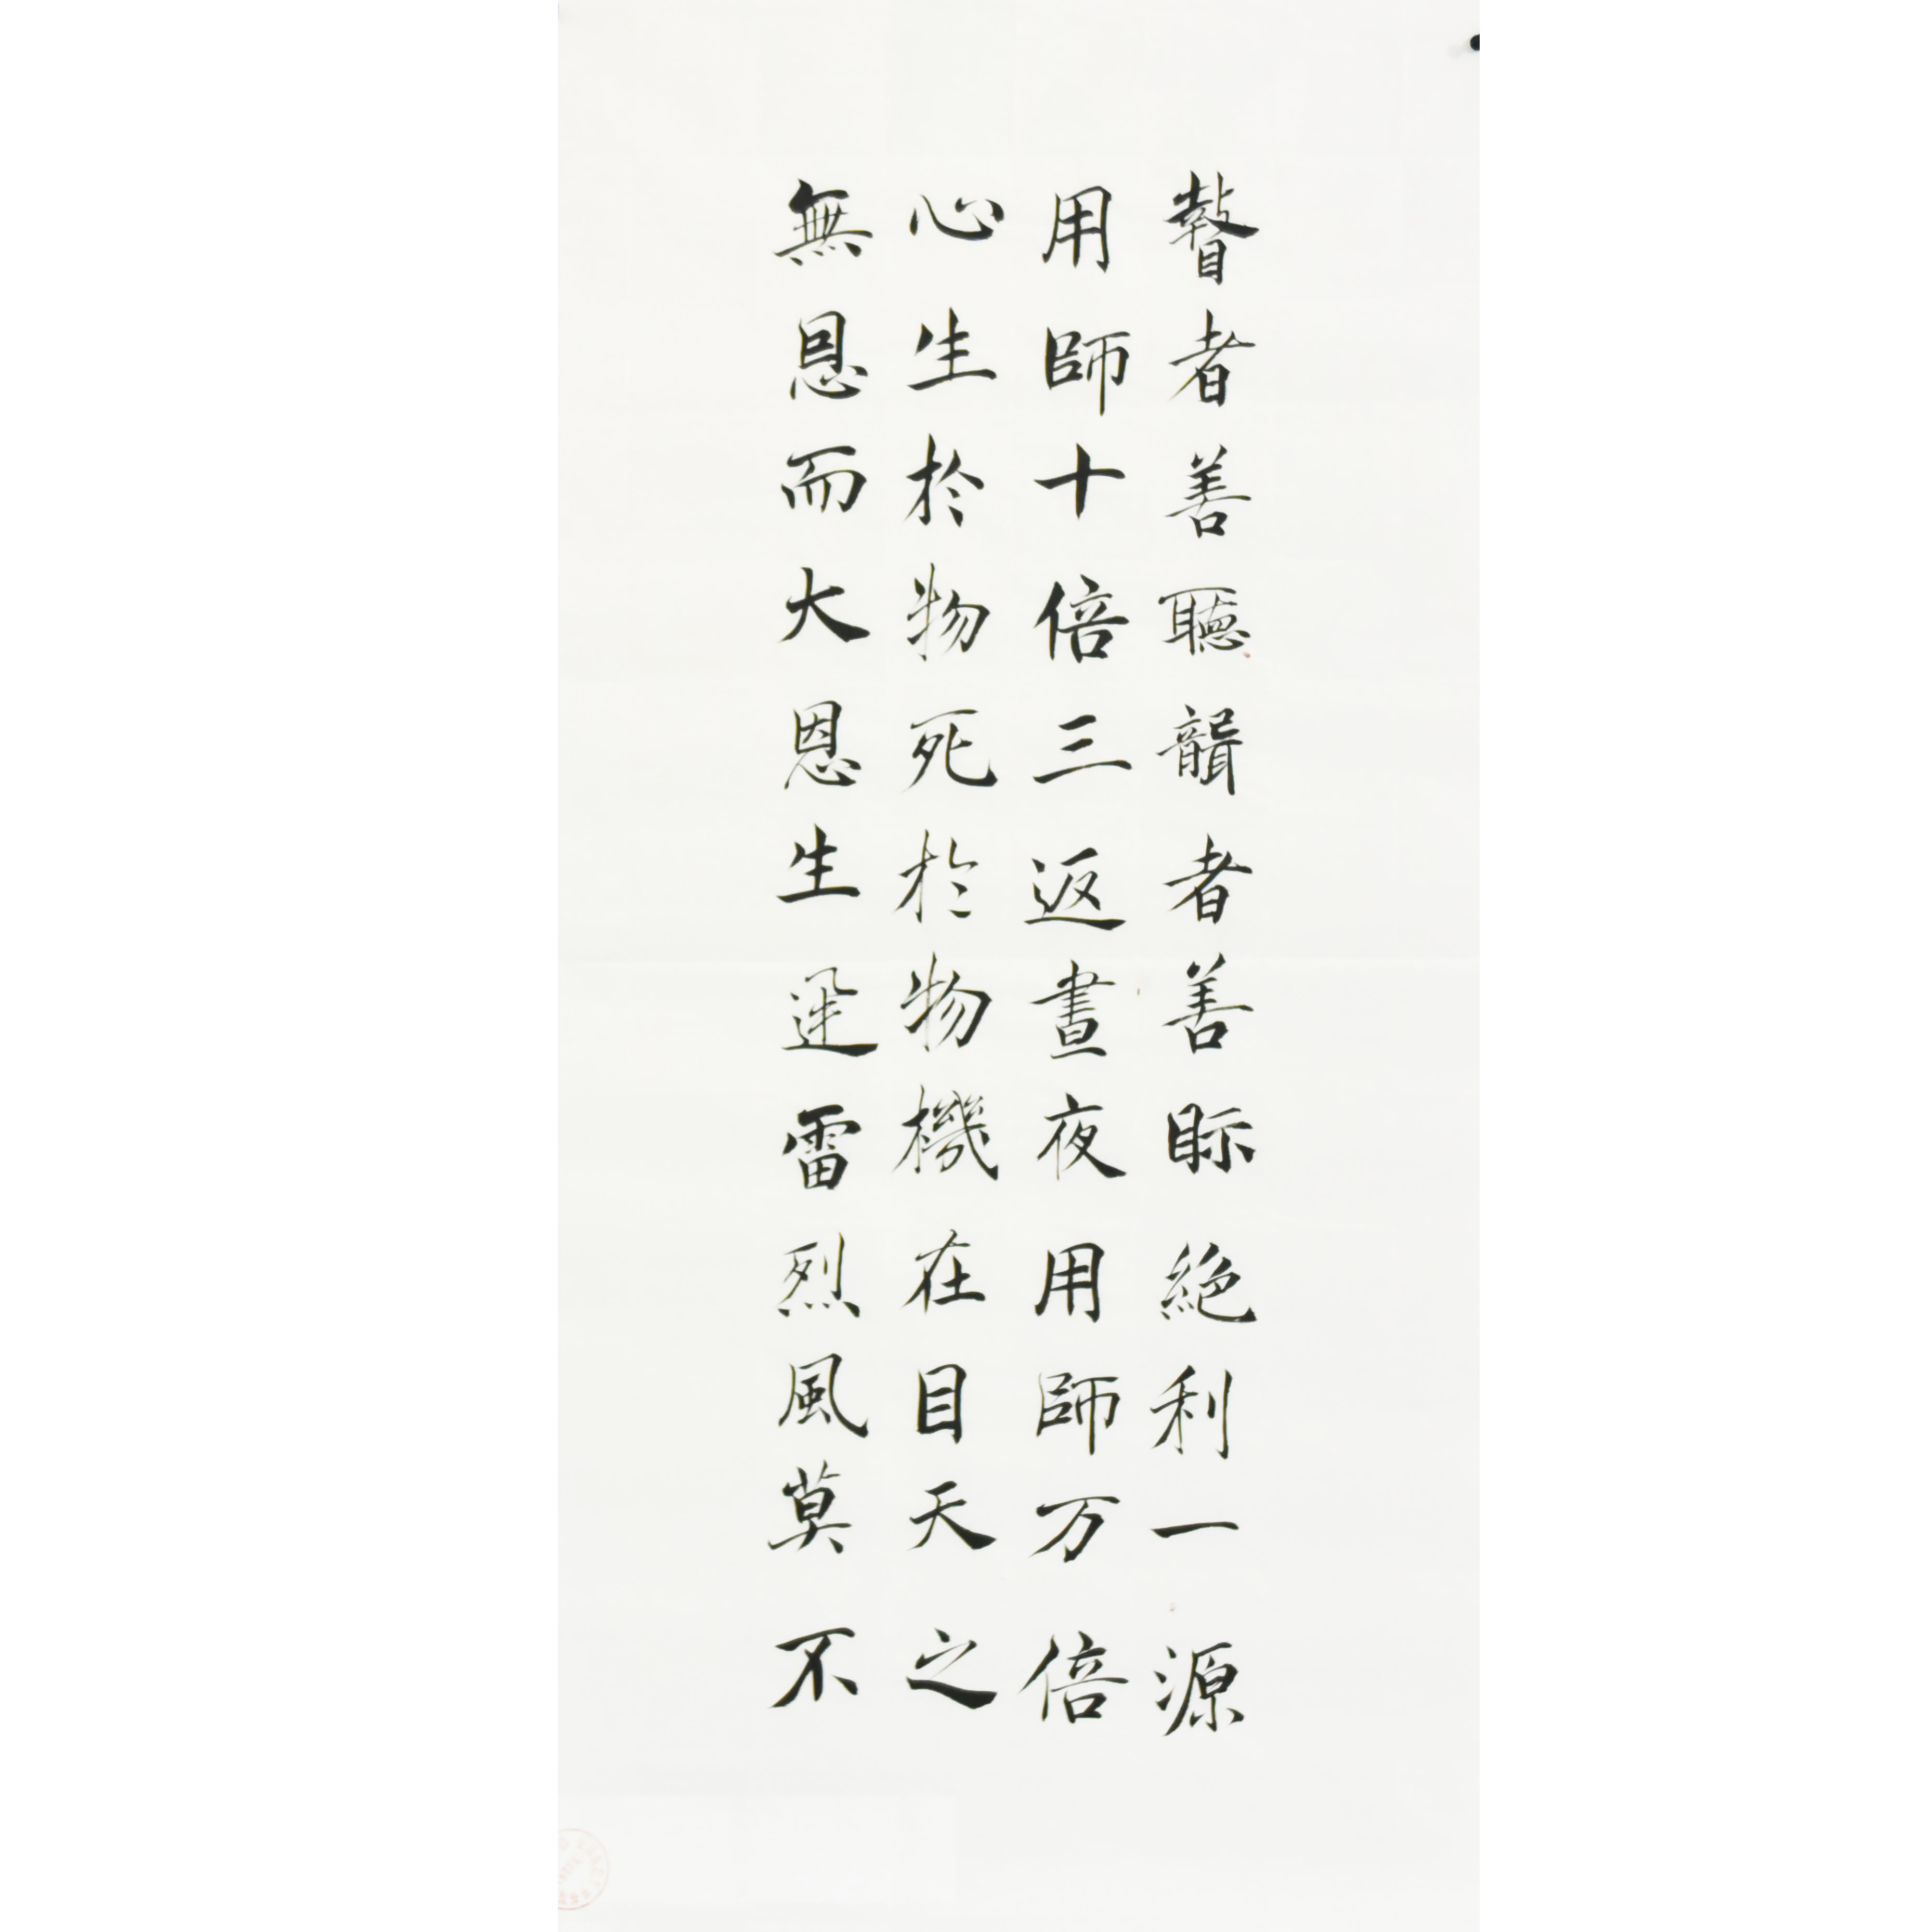 瞽者善聽聾者善眎絕利一源
用師十倍三返晝夜用師万倍
心生於物死於物機在目天之
無恩而大恩生迅雷烈風莫不